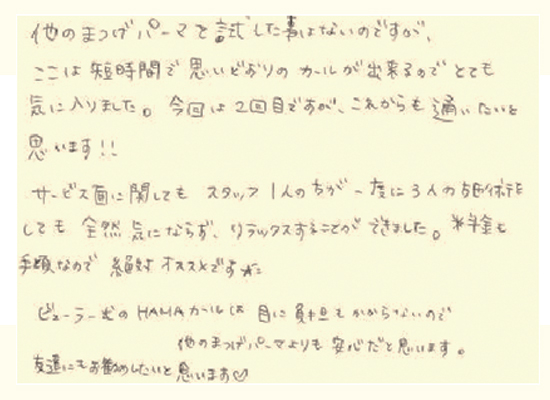 他のまつげパーマを試した事はないのですが、
ここは短時間で思いどおりのカールが出来るのでとても
気に入りました。今回は2回目ですが、これからも通いたいと
思います!!
サービス面に関しても スタッフ1人の方が一度に3人の施術を
しても全然気にならず、リラックスすることができました。料金も
手頃なので 絶対オススメです
ビューラー式のHAMAカールは 目に負担もかからないので
他のまつげパーマよりも安心だと思います。
友達にもお勧めしたいと思います♡